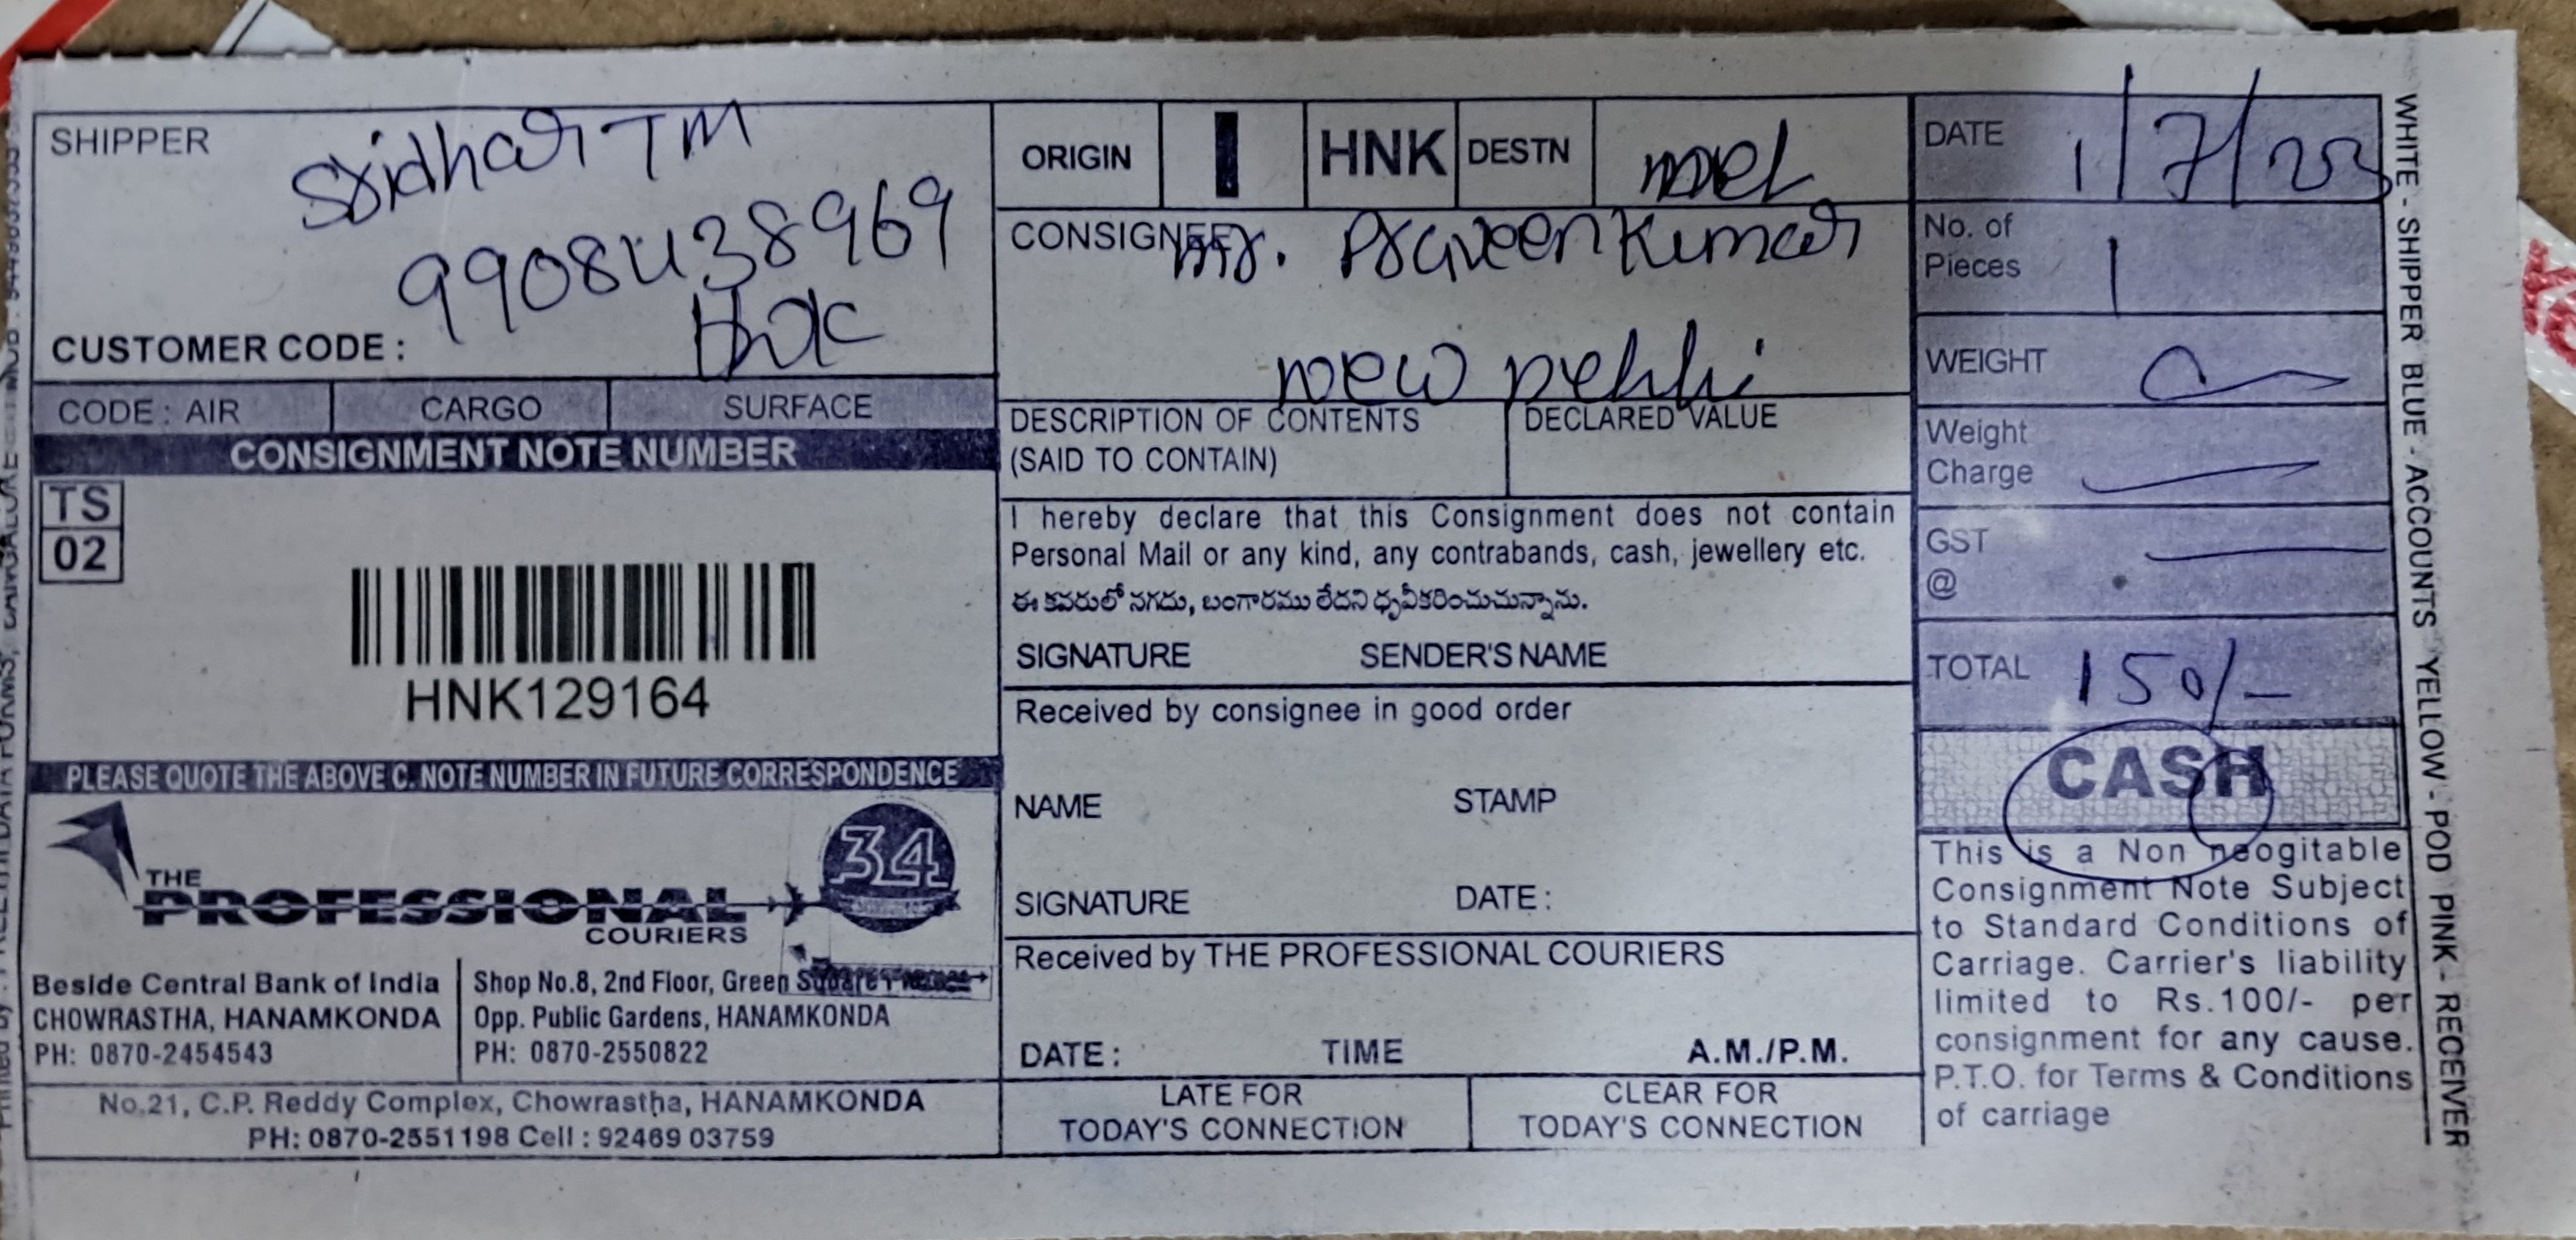 SHIPPER
Sridhar TM
9908438969
HNK
CUSTOMER CODE :
CODE : AIR CARGO SURFACE
CONSIGNMENT NOTE NUMBER
TS
02
HNK129164
PLEASE QUOTE THE ABOVE C. NOTE NUMBER IN FUTURE CORRESPONDENCE
34
THE
PROFESSIONAL
COURIERS
Beside Central Bank of India
CHOWRASTHA, HANAMKONDA
PH: 0870-2454543
Shop No.8, 2nd Floor, Green Square
Opp. Public Gardens, HANAMKONDA
PH: 0870-2550822
No.21, C.P. Reddy Complex, Chowrastha, HANAMKONDA
PH: 0870-2551198 Cell : 92469 03759
ORIGIN HNK DESTN
CONSIGNEE Mr. Praveen Kumar
New Delhi
DESCRIPTION OF CONTENTS
(SAID TO CONTAIN)
DECLARED VALUE
I hereby declare that this Consignment does not contain
Personal Mail or any kind, any contrabands, cash, jewellery etc.
ఈ కవరులో నగదు, బంగారము లేదని ధృవీకరించుచున్నాను.
SIGNATURE SENDER'S NAME
Received by consignee in good order
NAME STAMP
SIGNATURE DATE :
Received by THE PROFESSIONAL COURIERS
DATE : TIME A.M./P.M.
LATE FOR
TODAY'S CONNECTION
CLEAR FOR
TODAY'S CONNECTION
DATE 1/7/23
No. of
Pieces 1
WEIGHT
Weight
Charge
GST
@
TOTAL 150/-
CASH
This is a Non neogitable
Consignment Note Subject
to Standard Conditions of
Carriage. Carrier's liability
limited to Rs.100/- per
consignment for any cause.
P.T.O. for Terms & Conditions
of carriage
WHITE - SHIPPER BLUE - ACCOUNTS YELLOW - POD PINK - RECEIVER